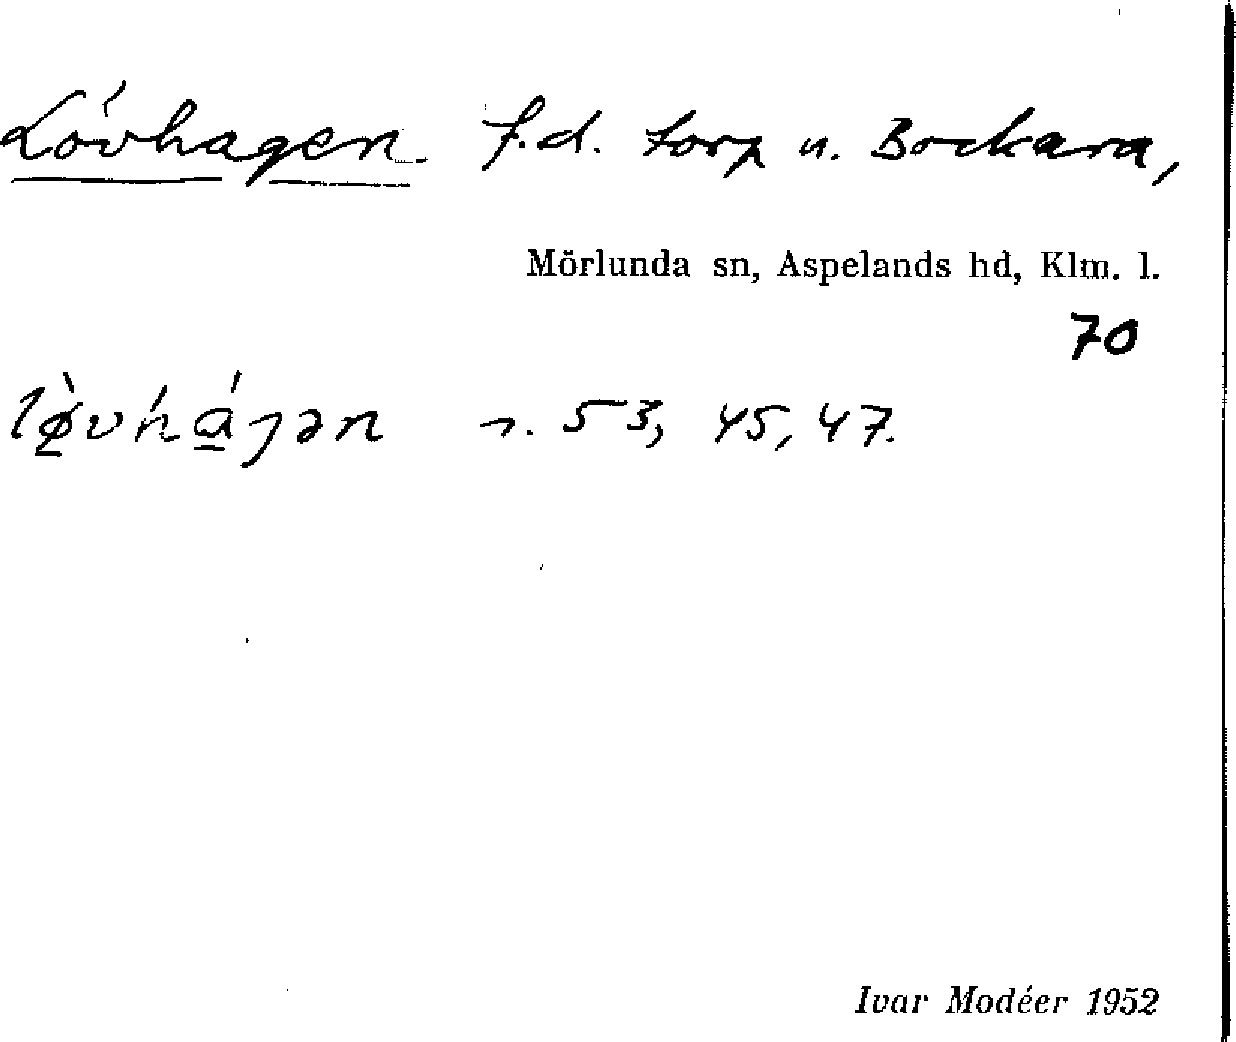 Lövhagen f.d. torp u. Bockara,
Mörlunda sn, Aspelands hd, Klm. l.
70
lø̀vhágən s. 53, 45, 47.
Ivar Modéer 1952